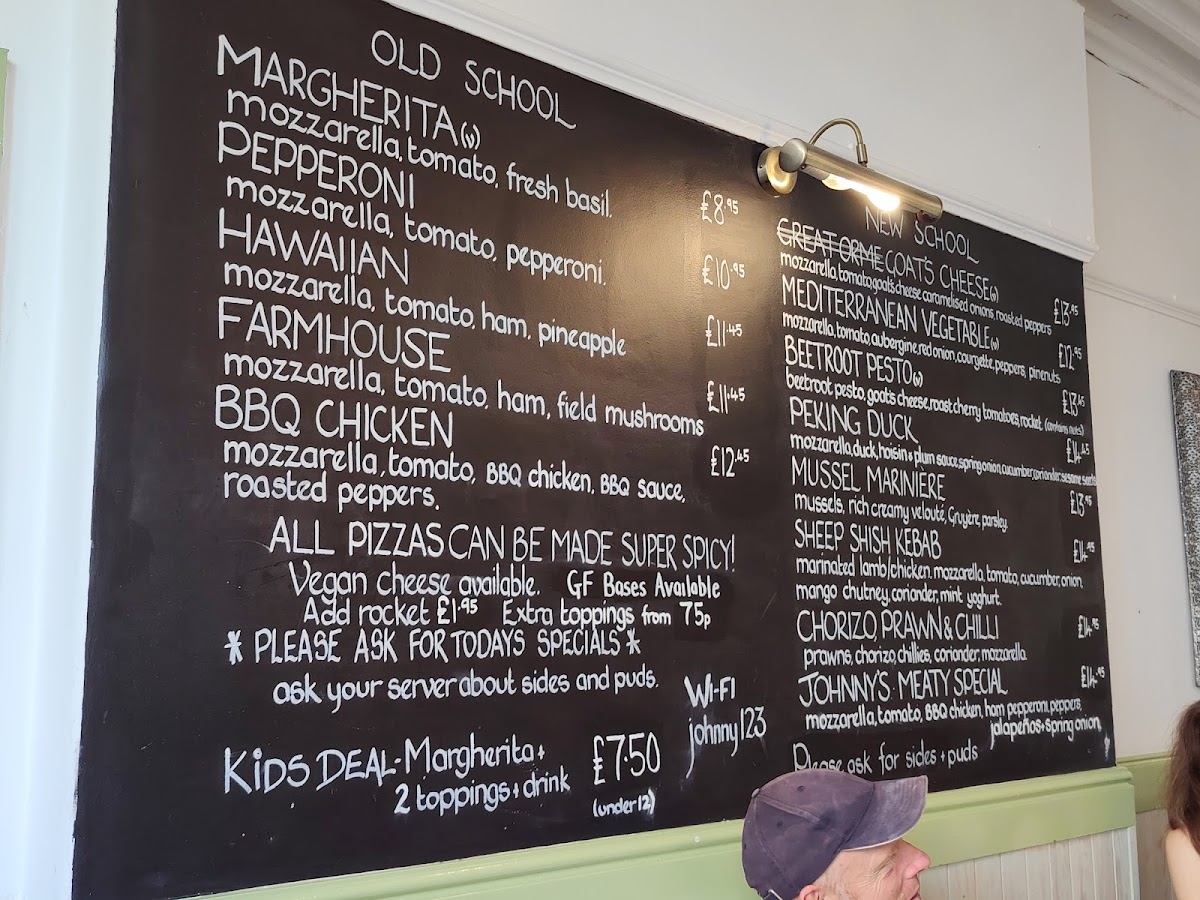 OLD SCHOOL
MARGHERITA (v)
mozzarella, tomato, fresh basil. £8.95
PEPPERONI
mozzarella, tomato, pepperoni. £10.95
HAWAIIAN
mozzarella, tomato, ham, pineapple £11.45
FARMHOUSE
mozzarella, tomato, ham, field mushrooms £11.45
BBQ CHICKEN £12.45
mozzarella, tomato, BBQ chicken, BBQ sauce,
roasted peppers.
ALL PIZZAS CAN BE MADE SUPER SPICY!
Vegan cheese available. GF Bases Available
Add rocket £1.95 Extra toppings from 75p
* PLEASE ASK FOR TODAYS SPECIALS *
ask your server about sides and puds.
Wi-Fi
johnny123
KIDS DEAL - Margherita +
2 toppings + drink £7.50
(under 12)
NEW SCHOOL
GREAT ORME GOAT'S CHEESE (v)
mozzarella, tomato, goat's cheese caramelised onions, roasted peppers £13.45
MEDITERRANEAN VEGETABLE (v)
mozzarella, tomato, aubergine, red onion, courgette, peppers, pinenuts £12.95
BEETROOT PESTO (v)
beetroot pesto, goat's cheese, roast cherry tomatoes, rocket. (contains nuts)
PEKING DUCK £14.45
mozzarella, duck, hoisin + plum sauce, spring onion, cucumber, coriander, sesame seeds
MUSSEL MARINIÈRE
mussels, rich creamy velouté, Gruyère, parsley
SHEEP SHISH KEBAB £14.95
marinated lamb/chicken, mozzarella, tomato, cucumber, onion,
mango chutney, coriander, mint yoghurt.
CHORIZO, PRAWN & CHILLI £14.95
prawns, chorizo, chillies, coriander, mozzarella.
JOHNNY'S MEATY SPECIAL £14.95
mozzarella, tomato, BBQ chicken, ham pepperoni, peppers,
jalapeños + spring onion,
Please ask for sides + puds